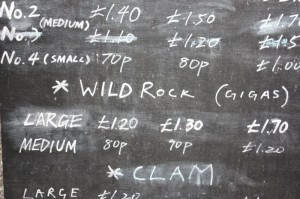 No.2 (MEDIUM) £1.40 £1.50 £1.70
No.3 £1.10 £1.20
No.4 (SMALL) 70p 80p £1.00
* WILD ROCK (GIGAS)
LARGE £1.20 £1.30 £1.70
MEDIUM 80p 90p £1.20
* CLAM
LARGE £1.20